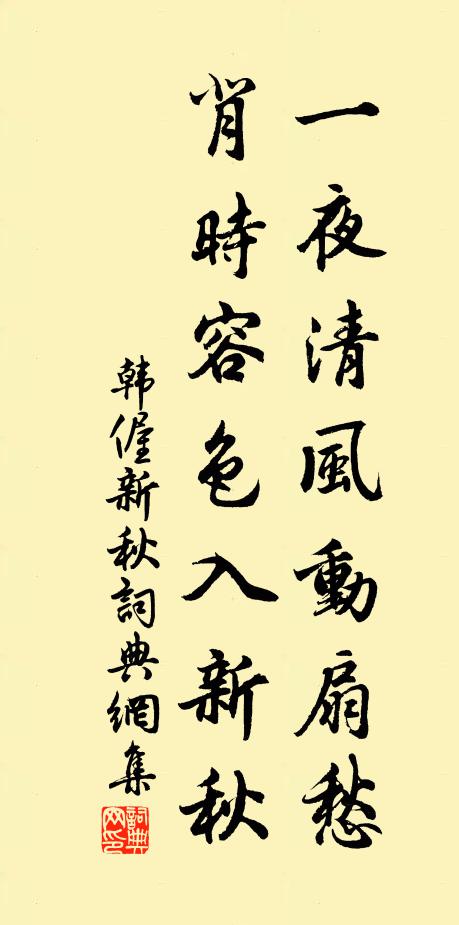 一夜清風動扇愁
背時容色入新秋
韩偓新秋詞典網集
詞典
网印